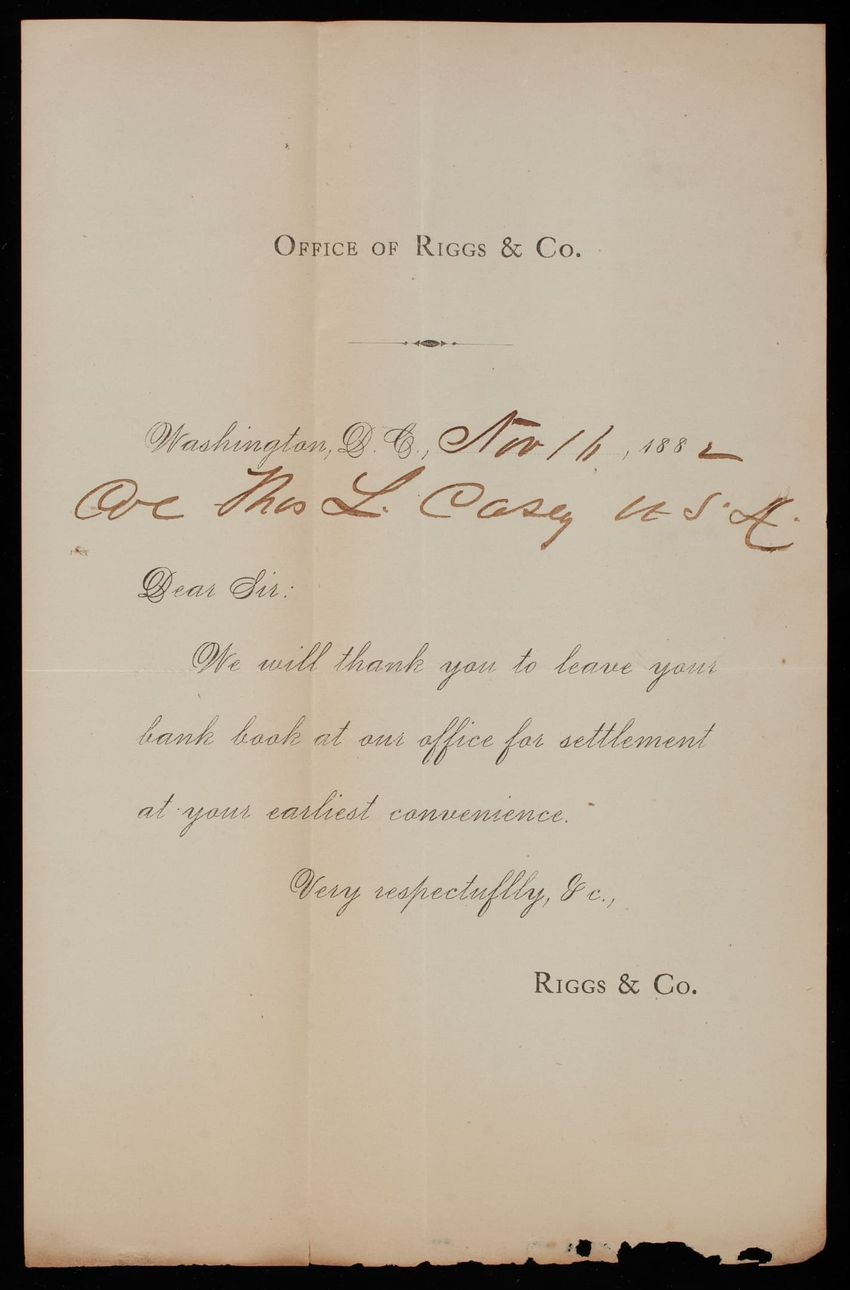 Office of Riggs & Co.
Washington, D. C., Nov 16, 1882
Col Thos L. Casey U.S.A.
Dear Sir:
We will thank you to leave your
bank book at our office for settlement
at your earliest convenience.
Very respectuflly, &c.,
Riggs & Co.